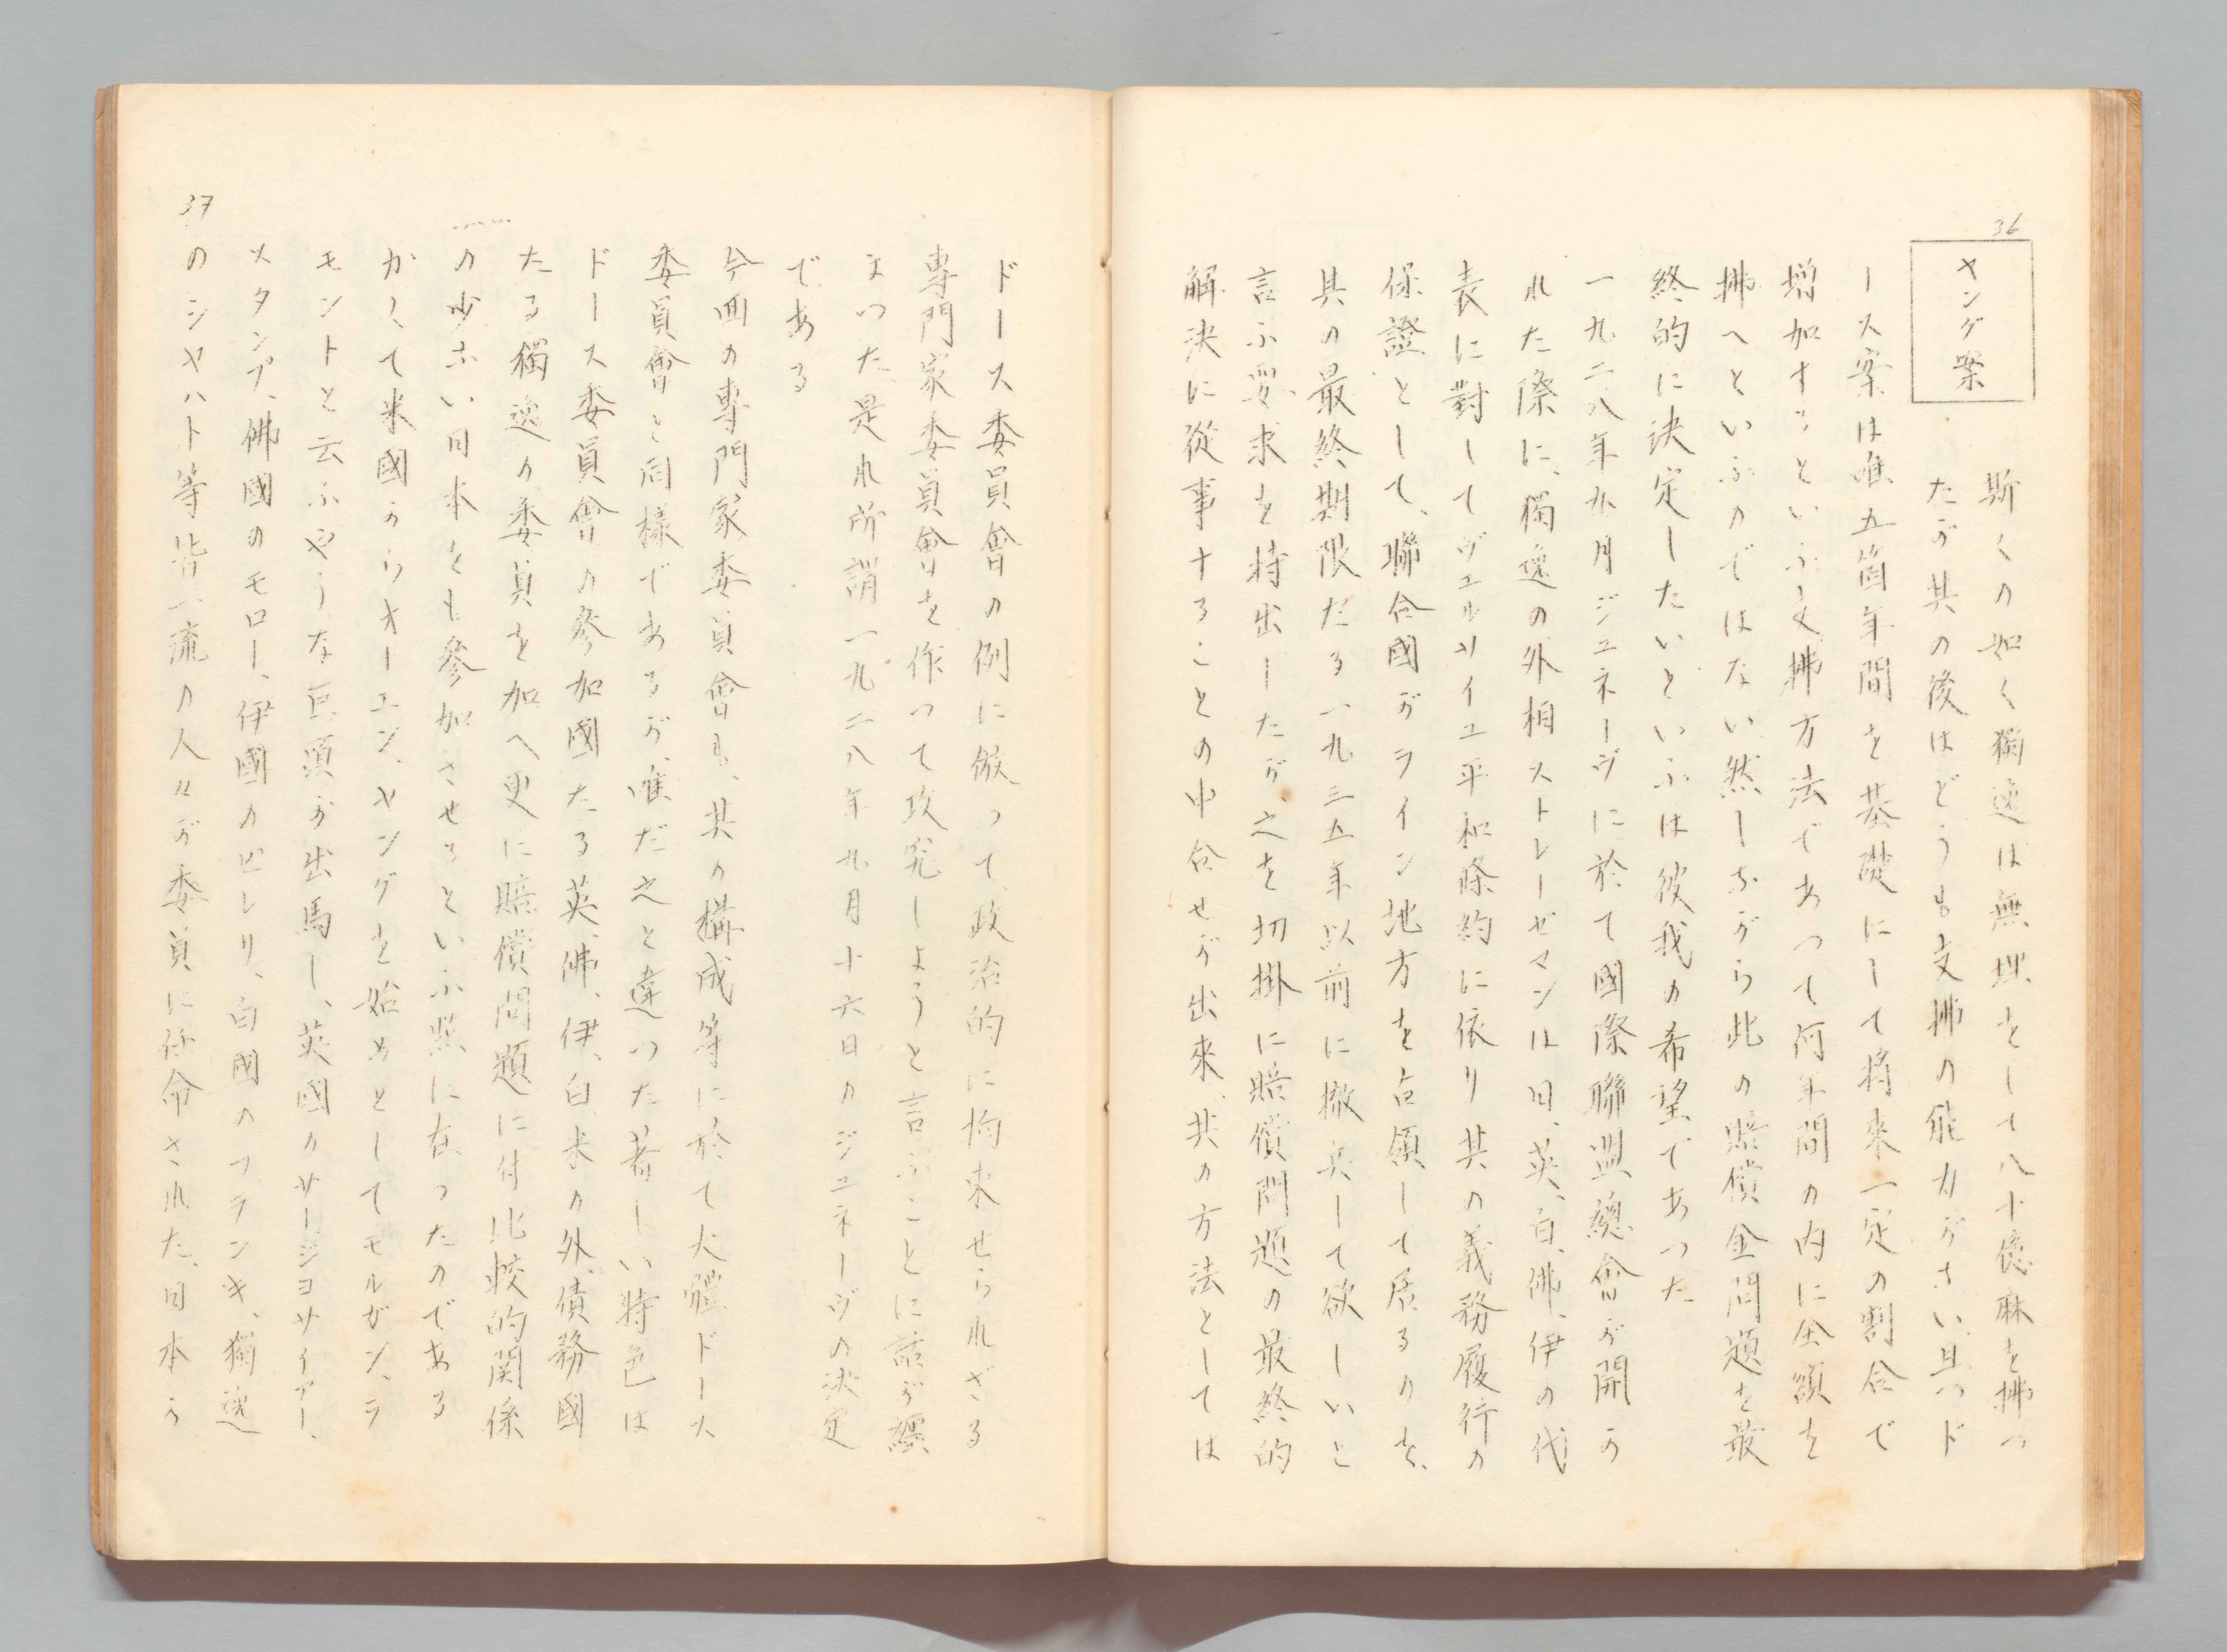 36
ヤング案
斯くの如く獨逸は無理をして八十億麻を拂つ
たが其の後はどうも支拂の能力がない且つド
ース案は唯五箇年間を基礎にして將來一定の割合で
增加するといふ支拂方法であつて何年間の內に全額を
拂へといふのではない然しながら此の賠償金問題を最
終的に決定したいといふは彼我の希望であつた
一九二八年九月ジュネーヴに於て國際聯盟總會が開か
れた際に、獨逸の外相ストレーゼマンは日、英、白、佛、伊の代
表に對してヴェルサイユ平和條約に依り其の義務履行の
保證として、聯合國がライン地方を占領して居るのを、
其の最終期限たる一九三五年以前に撤兵して欲しいと
言ふ要求を持出したが、之を切掛に賠償問題の最終的
解決に從事することの申合せが出來、共の方法としては
ドース委員會の例に倣つて、政治的に拘束せられざる
專門家委員會を作つて攻究しようと言ふことに話が纏
まつた是れ所謂一九二八年九月十六日のジュネーヴの決定
である
今囘の專門家委員會も、其の構成等に於て大體ドース
委員會と同樣であるが、唯だ之と違つた著しい特色は
ドース委員會の參加國たる英、佛、伊、白、米の外、債務國
たる獨逸の委員を加へ更に賠償問題に付比較的關係
の少ない日本をも參加させるといふ點に在つたのである
かくて米國からオーエン、ヤングを始めとしてモルガン、ラ
モントと云ふやうな巨頭が出馬し、英國のサー・ジヨサイアー、
スタンプ、佛國のモロー、伊國のピレリ、白國のフランキ、獨逸
37
のシヤハト等皆一流の人々が委員に任命された、日本か